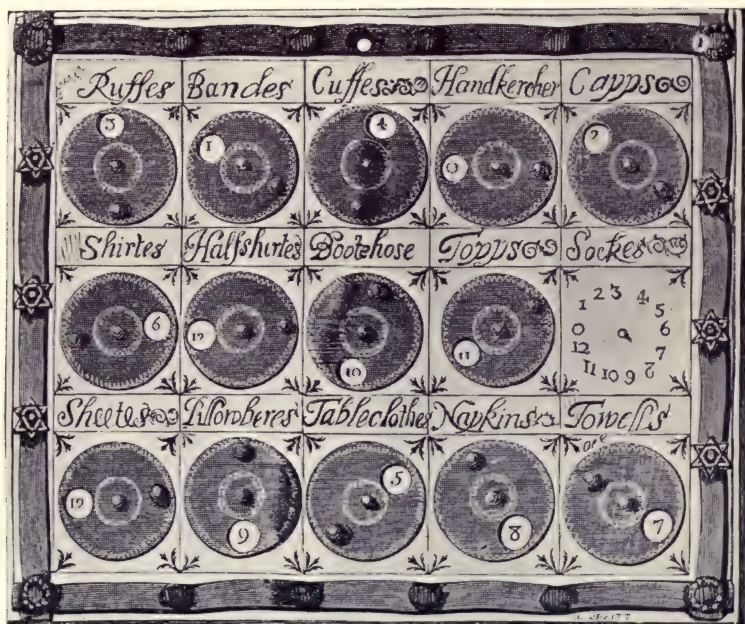 Ruffes Bandes Cuffes Handkercher Capps
3 1 4 0 2
Shirtes Halfshirtes Bootehose Topps Sockes
6 12 10 11
1 2 3 4 5 6 7 8 9 10 11 12 0
Sheetes Pillowberes Tableclothes Napkins Towells
12 9 5 8 7